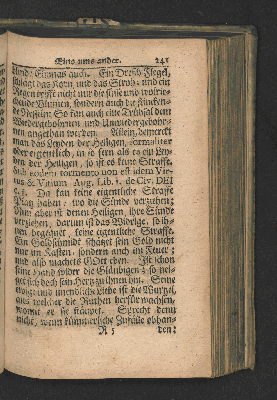 Eins ums ander. 241
schlägt das Korn und das Stroh: und ein
Regen trifft nicht nur die süsse und wolrie-
chende Blumen, sondern auch die stincken-
de Nesseln: So kan auch eine Trübsal dem
Wiedergebohrnen und Unwiedergebohr-
nen angethan werden. Allein, bemerckt
man das Leyden der Heiligen,
der eigentlich, in so fern als es ein Ley-
den der Heiligen, so ist es keine Straffe.
eodem tormento non est idem Vir-
tus & Vitium. Aug. Lib. 1. de Civ. DEI
Da kan keine eigentliche Straffe
Platz haben, wo die Sünde verziehen;
Nun aber ist denen Heiligen, ihre Sünde
verziehen, darum ist das Widrige, so ih-
nen begegnet, keine eigentliche Straffe.
Ein Goldschmidt schätzet sein Gold nicht
nur im Kasten, sondern auch im Feuer:
und also machets GOtt eben. Ist schon
seine Hand wider die Gläubigen; so nei-
get sich doch sein Hertz zu ihnen hin. Seine
ewige und unendliche Liebe ist die Wurtzel,
aus welcher die Ruthen herfür wachsen,
womit er sie stäupet. Sprecht denn
nicht, wenn kümmerliche Zufälle obhan-
R 5 den: